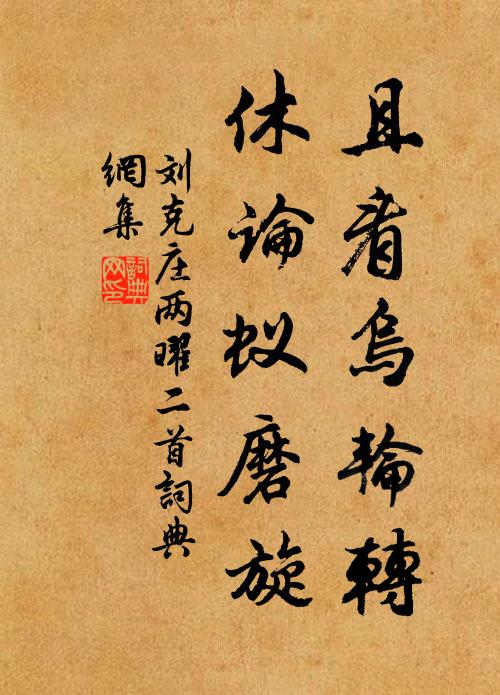 且看烏輪轉
休论蚁磨旋
刘克庄两曜二首詞典
網集
詞典
网印